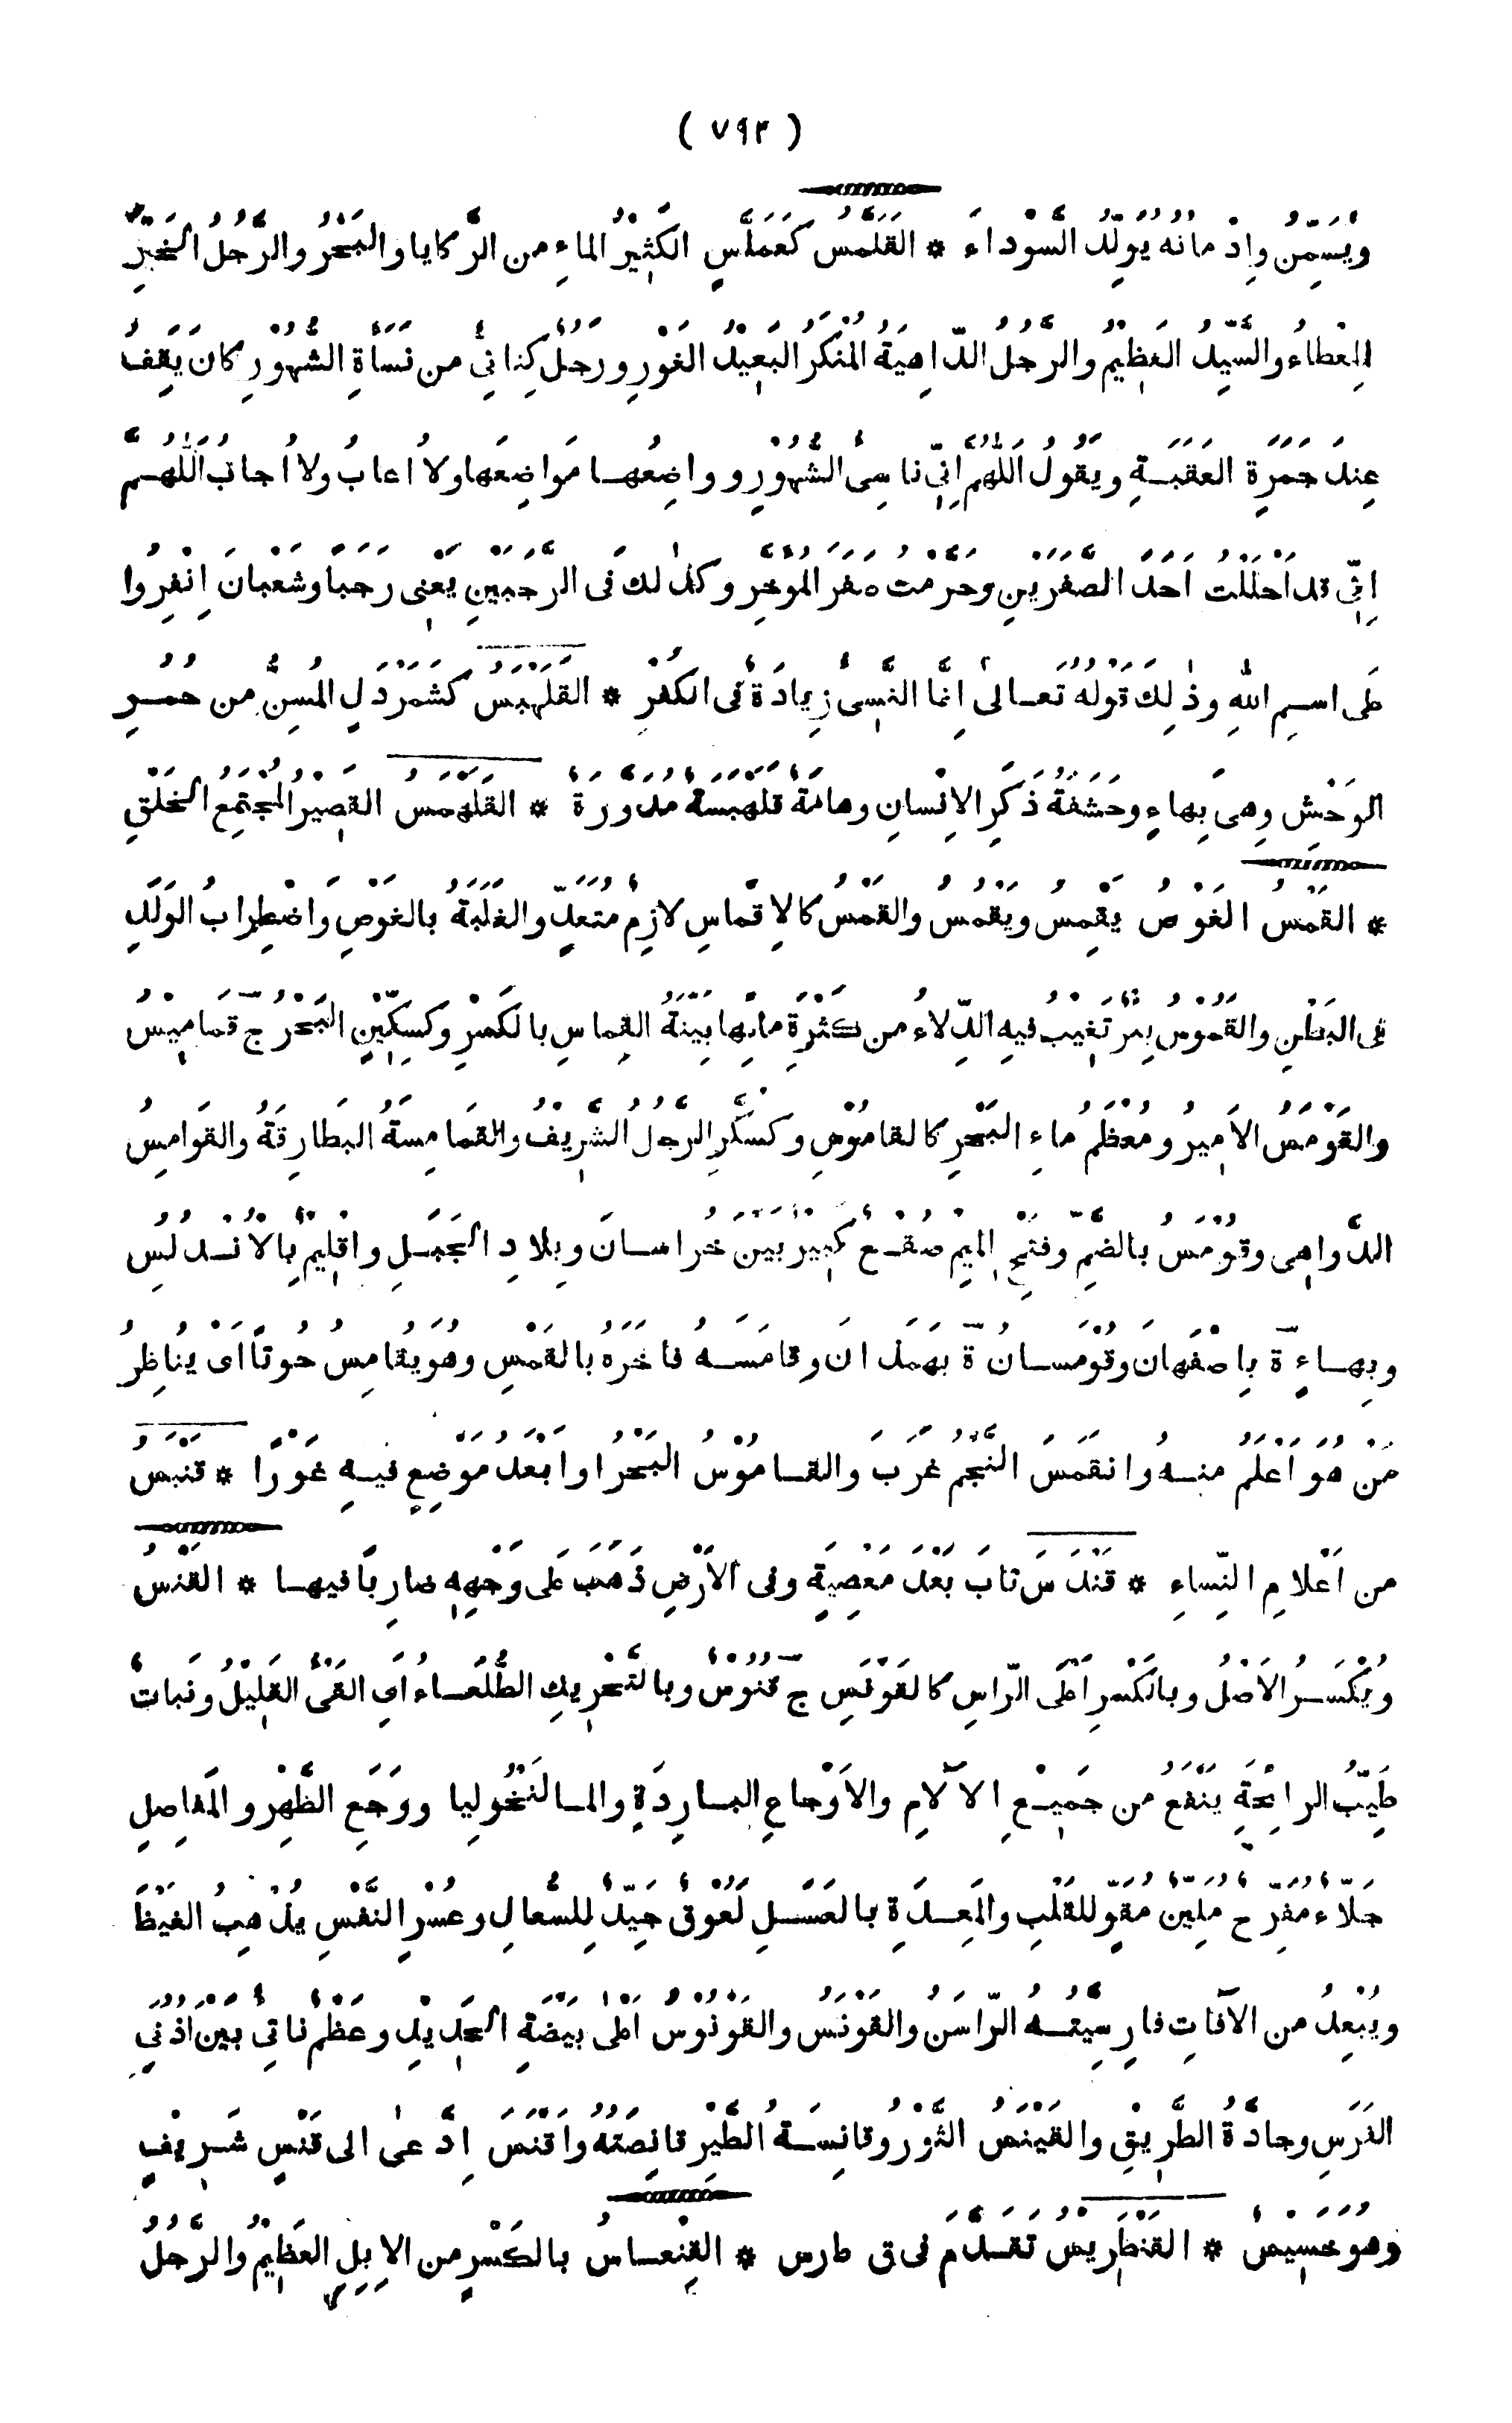 ( ٧٩٣ )
ويُسَمِّنُ وإدْمانُهُ يُوَلِّدُ السَّوْداءَ * القَلَمَّسُ كَعَمَلَّسٍ الكَثِيْرُ الماءِ من الرَّكايا والبَحْرُ والرَّجُلُ الخَيِّرُ
المِعْطاءُ والسَّيِّدُ العَظِيْمُ والرجلُ الدّاهِيَةُ المُنْكَرُ البَعِيْدُ الغَوْرِ ورجلٌ كِنانِيٌّ من نَسَأَةِ الشُّهُوْرِ كان يَقِفُ
عِندَ جَمْرَةِ العَقَبَةِ ويَقُوْلُ اللّٰهُمَّ اِنّي ناسِئُ الشُّهُوْرِ وواضِعُها مَواضِعَها ولا اُعابُ ولا اُجابُ اللّٰهُمَّ
اِنّي قد اَحْلَلْتُ اَحَدَ الصَّفَرَيْنِ وحَرَّمْتُ صفرَ المُؤَخَّرَ وكذٰلك فى الرَّجَبَيْنِ يَعْنِى رَجَبًا وشَعْبانَ اِنْفِرُوا
عَلى اسمِ اللهِ وذٰلِكَ قَوْلُهُ تَعالىٰ اِنَّما النَّسِىءُ زِيادَةٌ فى الكُفْرِ * القَلَهْبَسُ كَشَمَرْدَلٍ المُسِنُّ من حُمُرِ
الوَحْشِ وهِى بِهاءٍ وحَشَفَةُ ذَكَرِ الاِنْسانِ وهامَةٌ قَلَهْبَسَةٌ مُدَوَّرَةٌ * القَلَهْمَسُ القَصِيْرُ المُجْتَمِعُ الخَلْقِ
* القَمْسُ الغَوْصُ يَقْمِسُ ويَقْمُسُ والقَمْسُ كالاِقْماسِ لازِمٌ مُتَعَدٍّ والغَلَبَةُ بالغَوْصِ واضْطِرابُ الوَلَدِ
فى البَطْنِ والقَمُوْسُ بِئْرٌ تَغِيْبُ فيهِ الدِّلاءُ من كَثْرَةِ مائِها بَيِّنَةُ القِماسِ بالكَسْرِ وكَسِكِّيْنٍ البَحْرُ ج قَمامِيْسُ
والقَوْمَسُ الاَمِيرُ ومُعْظَمُ ماءِ البَحْرِ كالقامُوْسِ وكَسُكَّرٍ الرَّجُلُ الشَّرِيْفُ والقَمامِسَةُ البَطارِقَةُ والقَوامِسُ
الدَّواهِى وقُوْمَسُ بالضَّمِّ وفَتْحِ المِيْمِ صُقْعٌ كَبِيْرٌ بَيْنَ خُراسانَ وبِلادِ الجَبَلِ واِقْلِيْمٌ بِالاَنْدُلُسِ
وبِهاءٍ ة بِاَصْفَهانَ وقُوْمِسانُ ة بهَمَدانَ وقامَسَهُ فاخَرَهُ بالقَمْسِ وهُوَ يُقامِسُ حُوْتًا اَىْ يُناظِرُ
مَنْ هُوَ اَعْلَمُ منهُ وانقَمَسَ النَّجْمُ غَرَبَ والقامُوْسُ البَحْرُ اَوْ اَبْعَدُ مَوْضِعٍ فيهِ غَوْرًا * قَنْبَسُ
من اَعْلامِ النِّساءِ * قَنْدَسَ تابَ بَعْدَ مَعْصِيَةٍ وفى الاَرْضِ ذَهَبَ عَلى وَجْهِهِ ضارِبًا فيها * القَنْسُ
ويُكْسَرُ الاَصْلُ وبالكَسْرِ اَعْلَى الرّاسِ كالقَوْنَسِ ج قُنُوْسٌ وبالتَّحْرِيكِ الطُّلَعاءُ اَىِ القَىْءُ القَلِيْلُ ونَباتٌ
طَيِّبُ الرائِحَةِ يَنْفَعُ من جَمِيْعِ الآلامِ والاَوْجاعِ البارِدَةِ والمالَنْخُولِيا ووَجَعِ الظَّهْرِ والمَفاصِلِ
جَلّاءٌ مُفَرِّحٌ مُلَيِّنٌ مُقَوٍّ للقَلْبِ والمَعِدَةِ بالعَسَلِ لَعُوْقٌ جَيِّدٌ لِلسُّعالِ وعُسْرِ النَّفَسِ يُذْهِبُ الغَيْظَ
ويُبْعِدُ من الآفاتِ فارِسِيَّتُهُ الرّاسَنُ والقَوْنَسُ والقَوْنُوْسُ اَعْلى بَيْضَةِ الحَدِيْدِ وعَظْمٌ ناتِئٌ بَيْنَ اُذُنَىِ
الفَرَسِ وجادَّةُ الطَّرِيْقِ والقَيْنَسُ الثَّوْرُ وقانِسَةُ الطَّيْرِ قانِصَتُهُ واَقْنَسَ اِدَّعىٰ الى قَنْسٍ شَرِيْفٍ
وهُوَ خَسِيْسٌ * القَنْطَرِيْسُ تَقَدَّمَ فى ق طرس * القِنْعاسُ بالكَسْرِ من الاِبِلِ العَظِيْمُ والرَّجُلُ